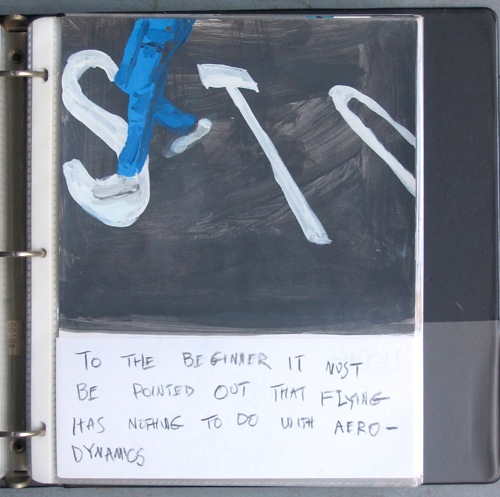 ST
TO THE BEGINNER IT MUST
BE POINTED OUT THAT FLYING
HAS NOTHING TO DO WITH AERO-
DYNAMICS